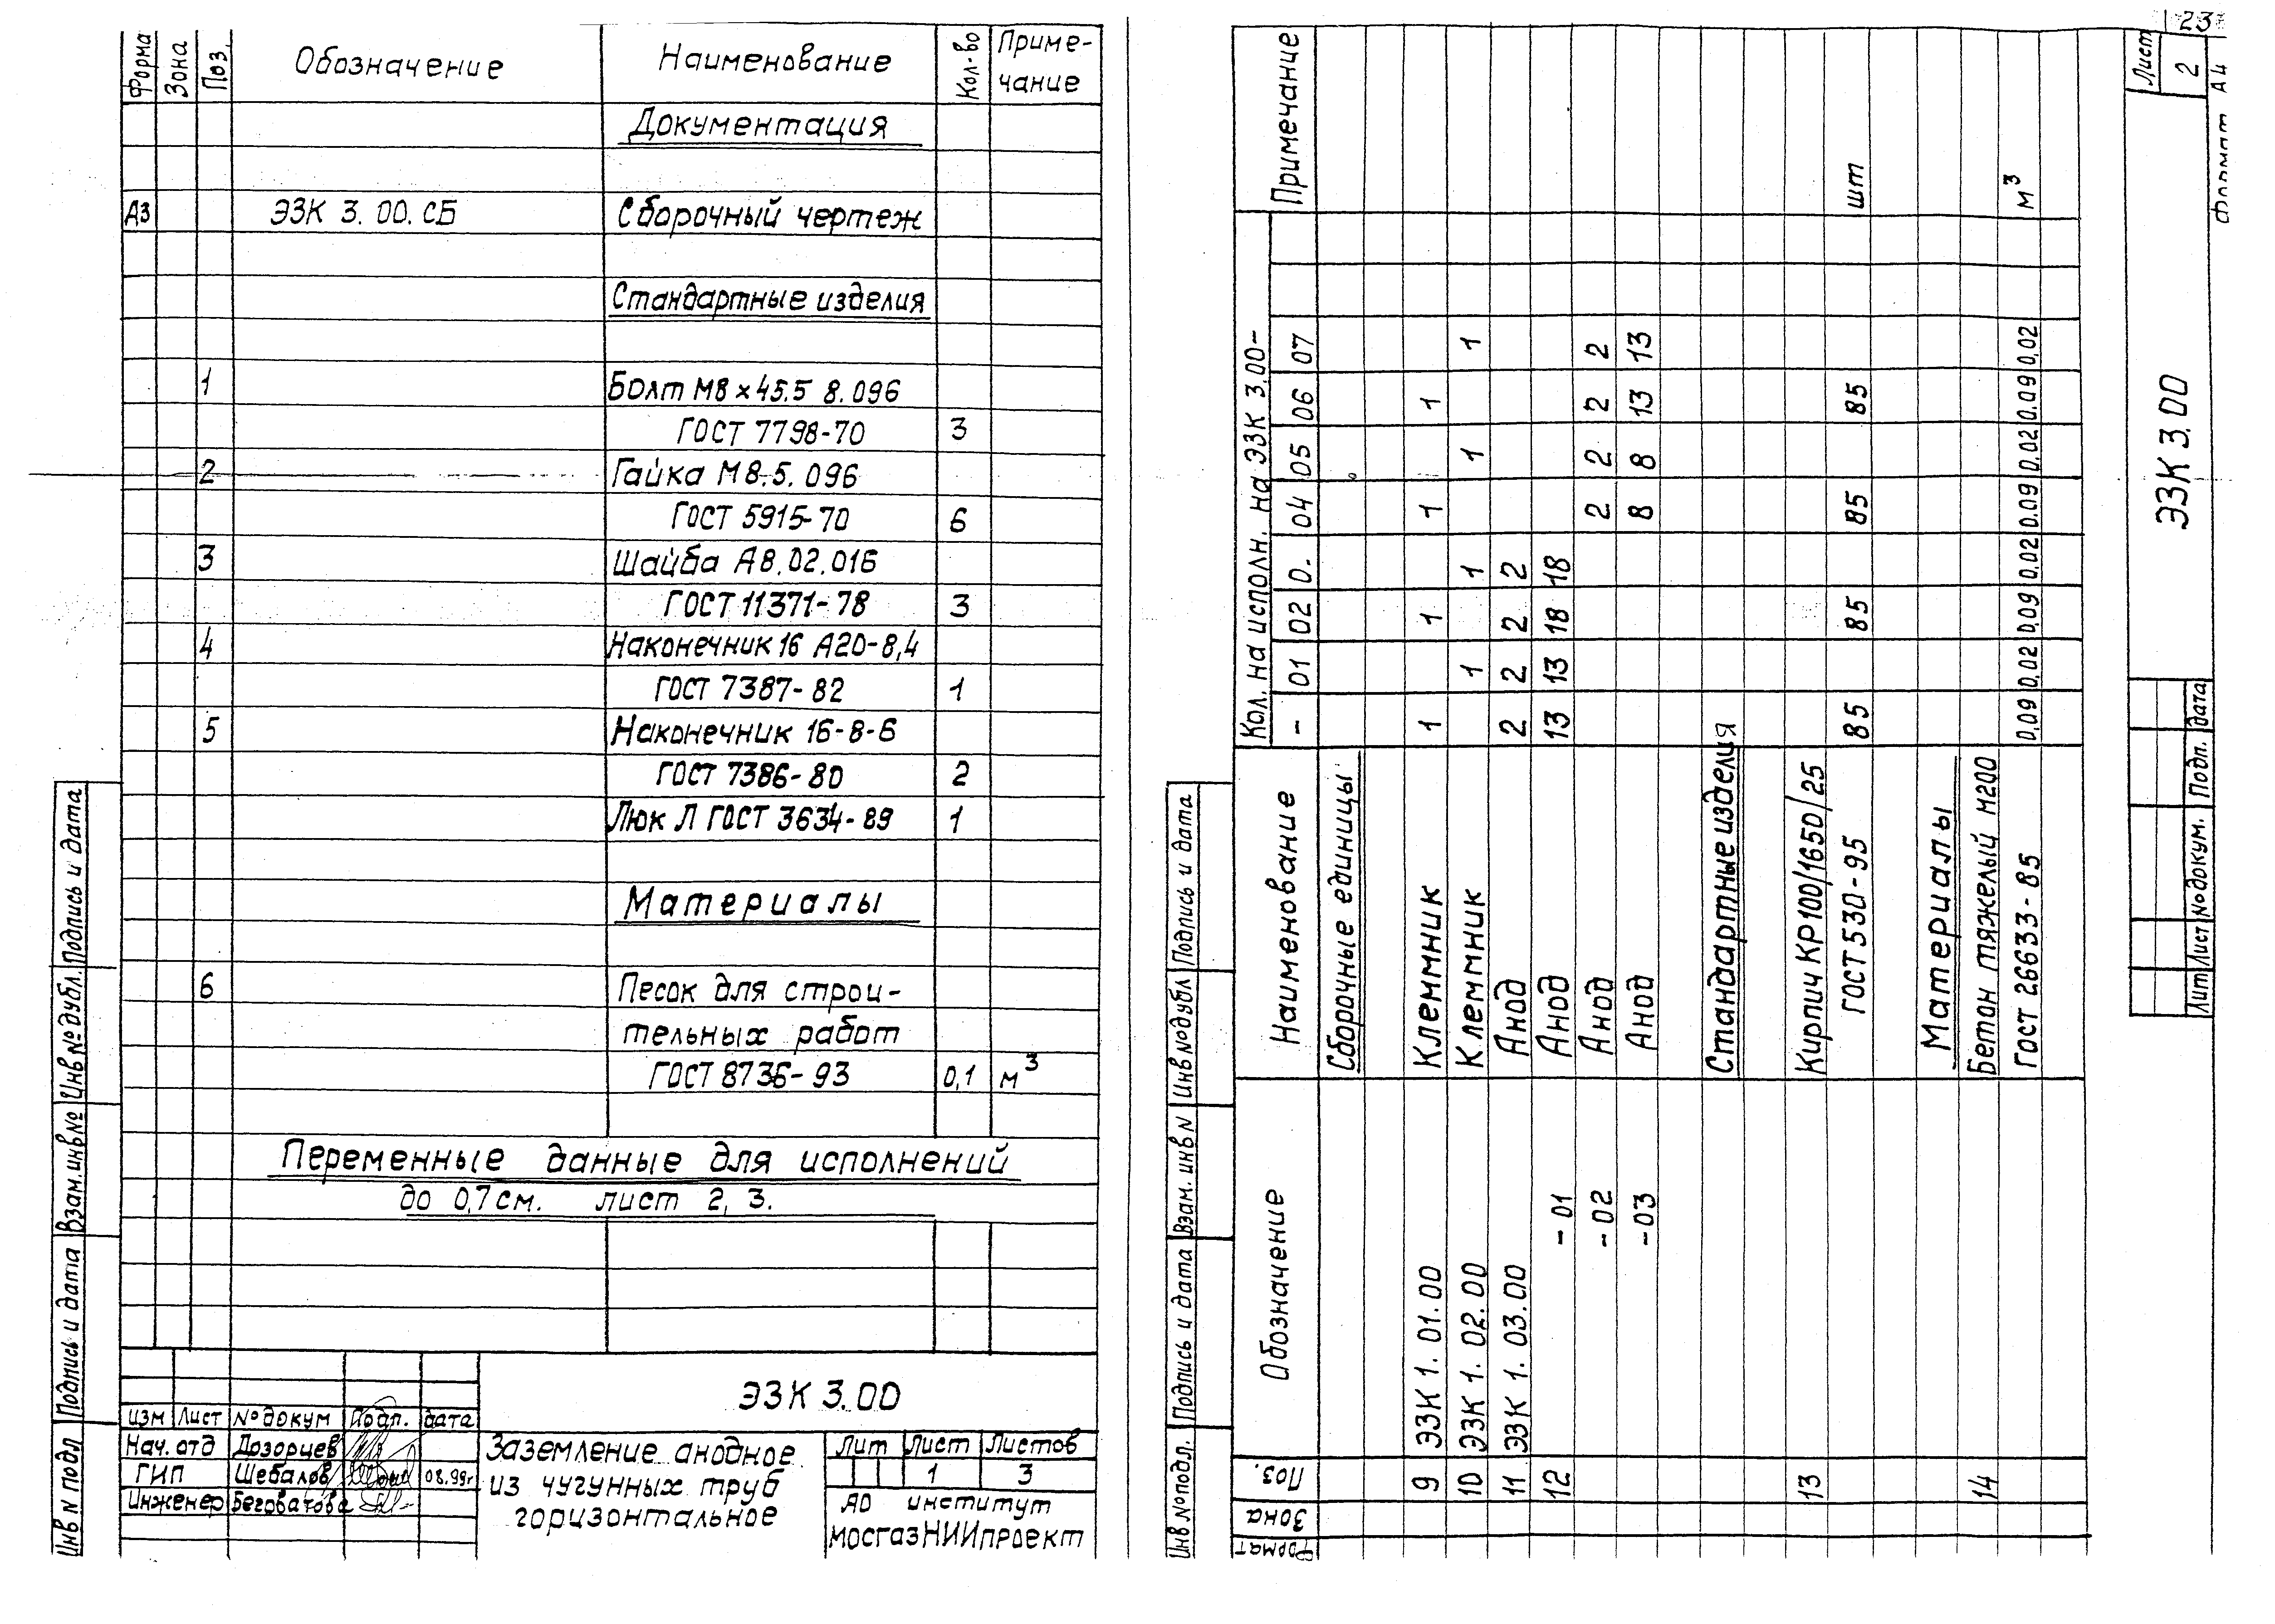 Форма Зона Поз. Обозначение Наименование Кол-во Приме-
чание
Документация
А3 ЭЗК 3.00.СБ Сборочный чертеж
Стандартные изделия
1 Болт М8×45.5 8.096
ГОСТ 7798-70 3
2 Гайка М8.5.096
ГОСТ 5915-70 6
3 Шайба А8.02.016
ГОСТ 11371-78 3
4 Наконечник 16 А20-8,4
ГОСТ 7387-82 1
5 Наконечник 16-8-6
ГОСТ 7386-80 2
Люк Л ГОСТ 3634-89 1
Материалы
6 Песок для строи-
тельных работ
ГОСТ 8736-93 0,1 м³
Переменные данные для исполнений
до 0,7 см. лист 2, 3.
Инв N подл Подпись и дата Взам. инв № Инв № дубл. Подпись и дата
ЭЗК 3.00
изм Лист № докум Подп. дата
Нач. отд Дозорцев
ГИП Шебалов 08.99г
Инженер Беговатова
Заземление анодное
из чугунных труб
горизонтальное
Лит Лист Листов
1 3
АО институт
мосгазНИИпроект
23
Формат Зона Поз. Обозначение Наименование Кол. на исполн. на ЭЗК 3.00- Примечание
- 01 02 0. 04 05 06 07
Сборочные единицы
9 ЭЗК 1.01.00 Клеммник 1 1 1 1
10 ЭЗК 1.02.00 Клеммник 1 1 1 1
11 ЭЗК 1.03.00 Анод 2 2 2 2
12 -01 Анод 13 13 18 18
-02 Анод 2 2 2 2
-03 Анод 8 8 13 13
Стандартные изделия
13 Кирпич КР 100/1650/25
ГОСТ 530-95 85 85 85 85 шт
Материалы
14 Бетон тяжелый М200
Гост 26633-85 0,09 0,02 0,09 0,02 0.09 0.02 0.09 0,02 м³
Инв № подл. Подпись и дата Взам. инв N Инв № дубл Подпись и дата
Лит Лист № докум. Подп. дата
ЭЗК 3.00
Лист
2
формат А4